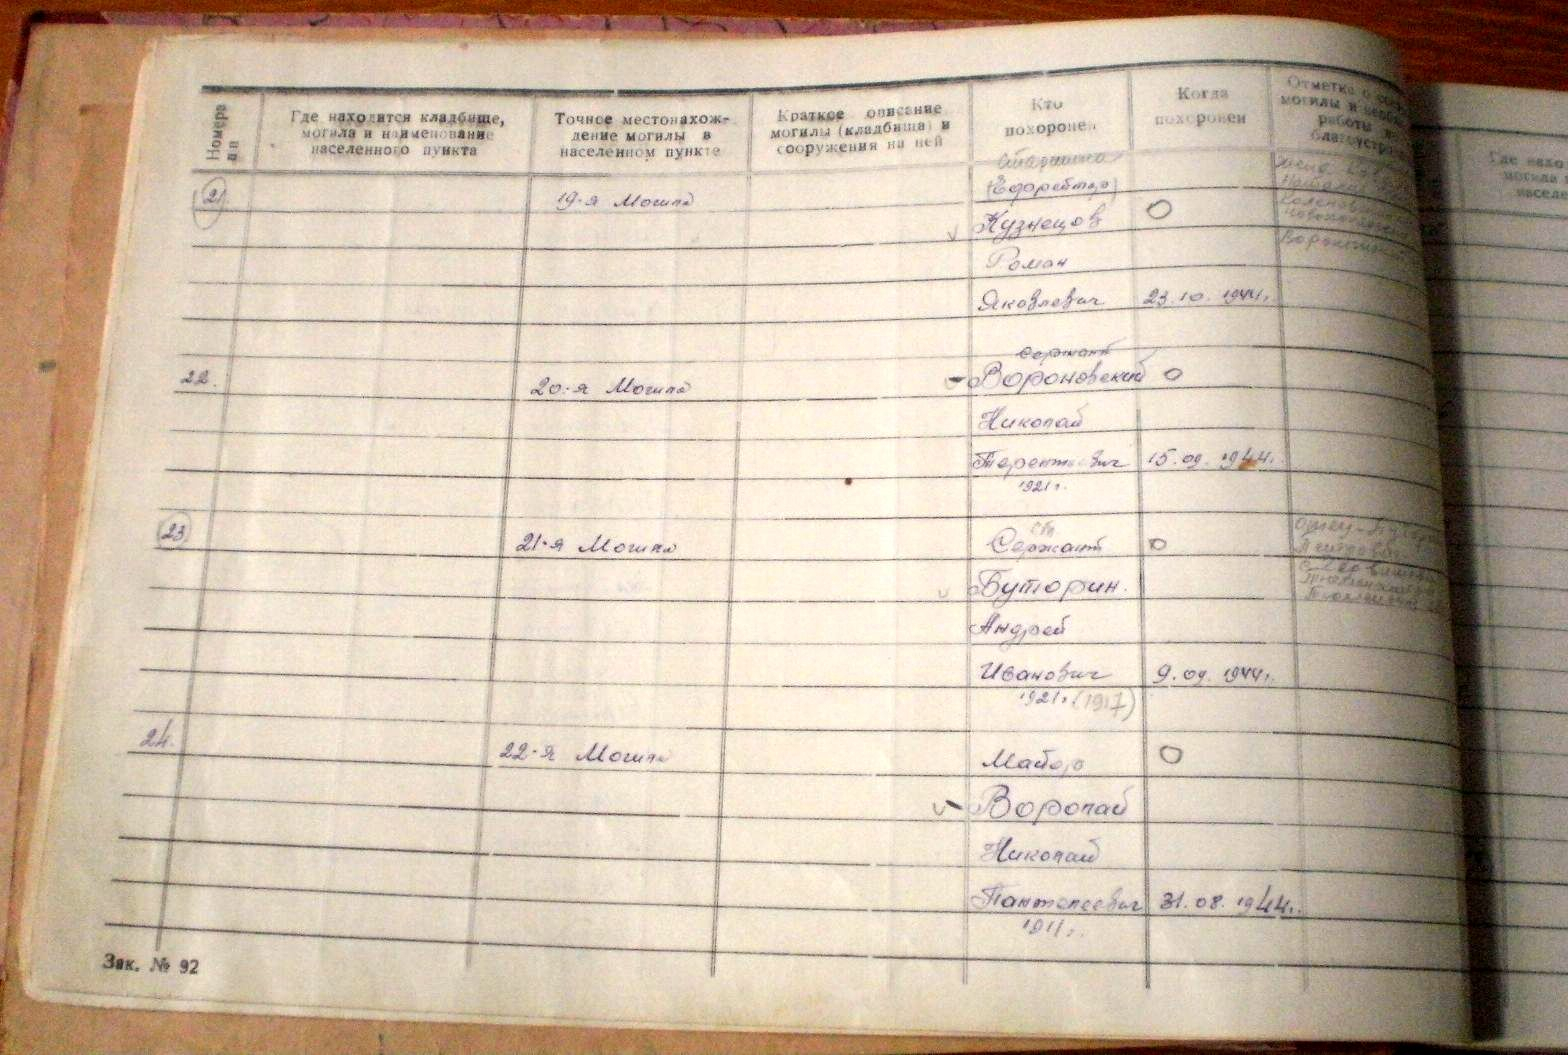 Номера
пп
Где находится кладбище,
могила и наименование
населенного пункта
Точное местонахож-
дение могилы в
населенном пункте
Краткое описание
могилы (кладбища) и
сооружения на ней
Кто
похоронен
Когда
похоронен
Отметка
могилы и
работы
благоустр
Где нахо
могила
населе
21
19-я Могила
(Ефрейтор)
Кузнецов
Роман
Яковлевич 23.10.1944г.
22.
20-я Могила
сержант
Вороновский
Николай
Терентьевич 15.09.1944.
1921г.
23
21-я Могила
ст
Сержант
Буторин.
Андрей
Иванович 9.09.1944г.
1921г. (1917)
24.
22-я Могила
Майор
Воропай
Николай
Пантелеевич 31.08.1944г.
1911г.
Зак. № 92